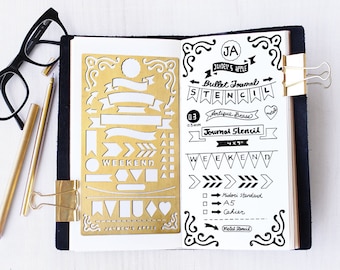 WEEKEND
JAYDEN'S APPLE
JA
JAYDEN'S APPLE
Bullet Journal
STENCIL
03
Antique Brass
Journal Stencil
WEEKEND
→ Midori Standard
→ A5
→ Cahier
Metal Stencil